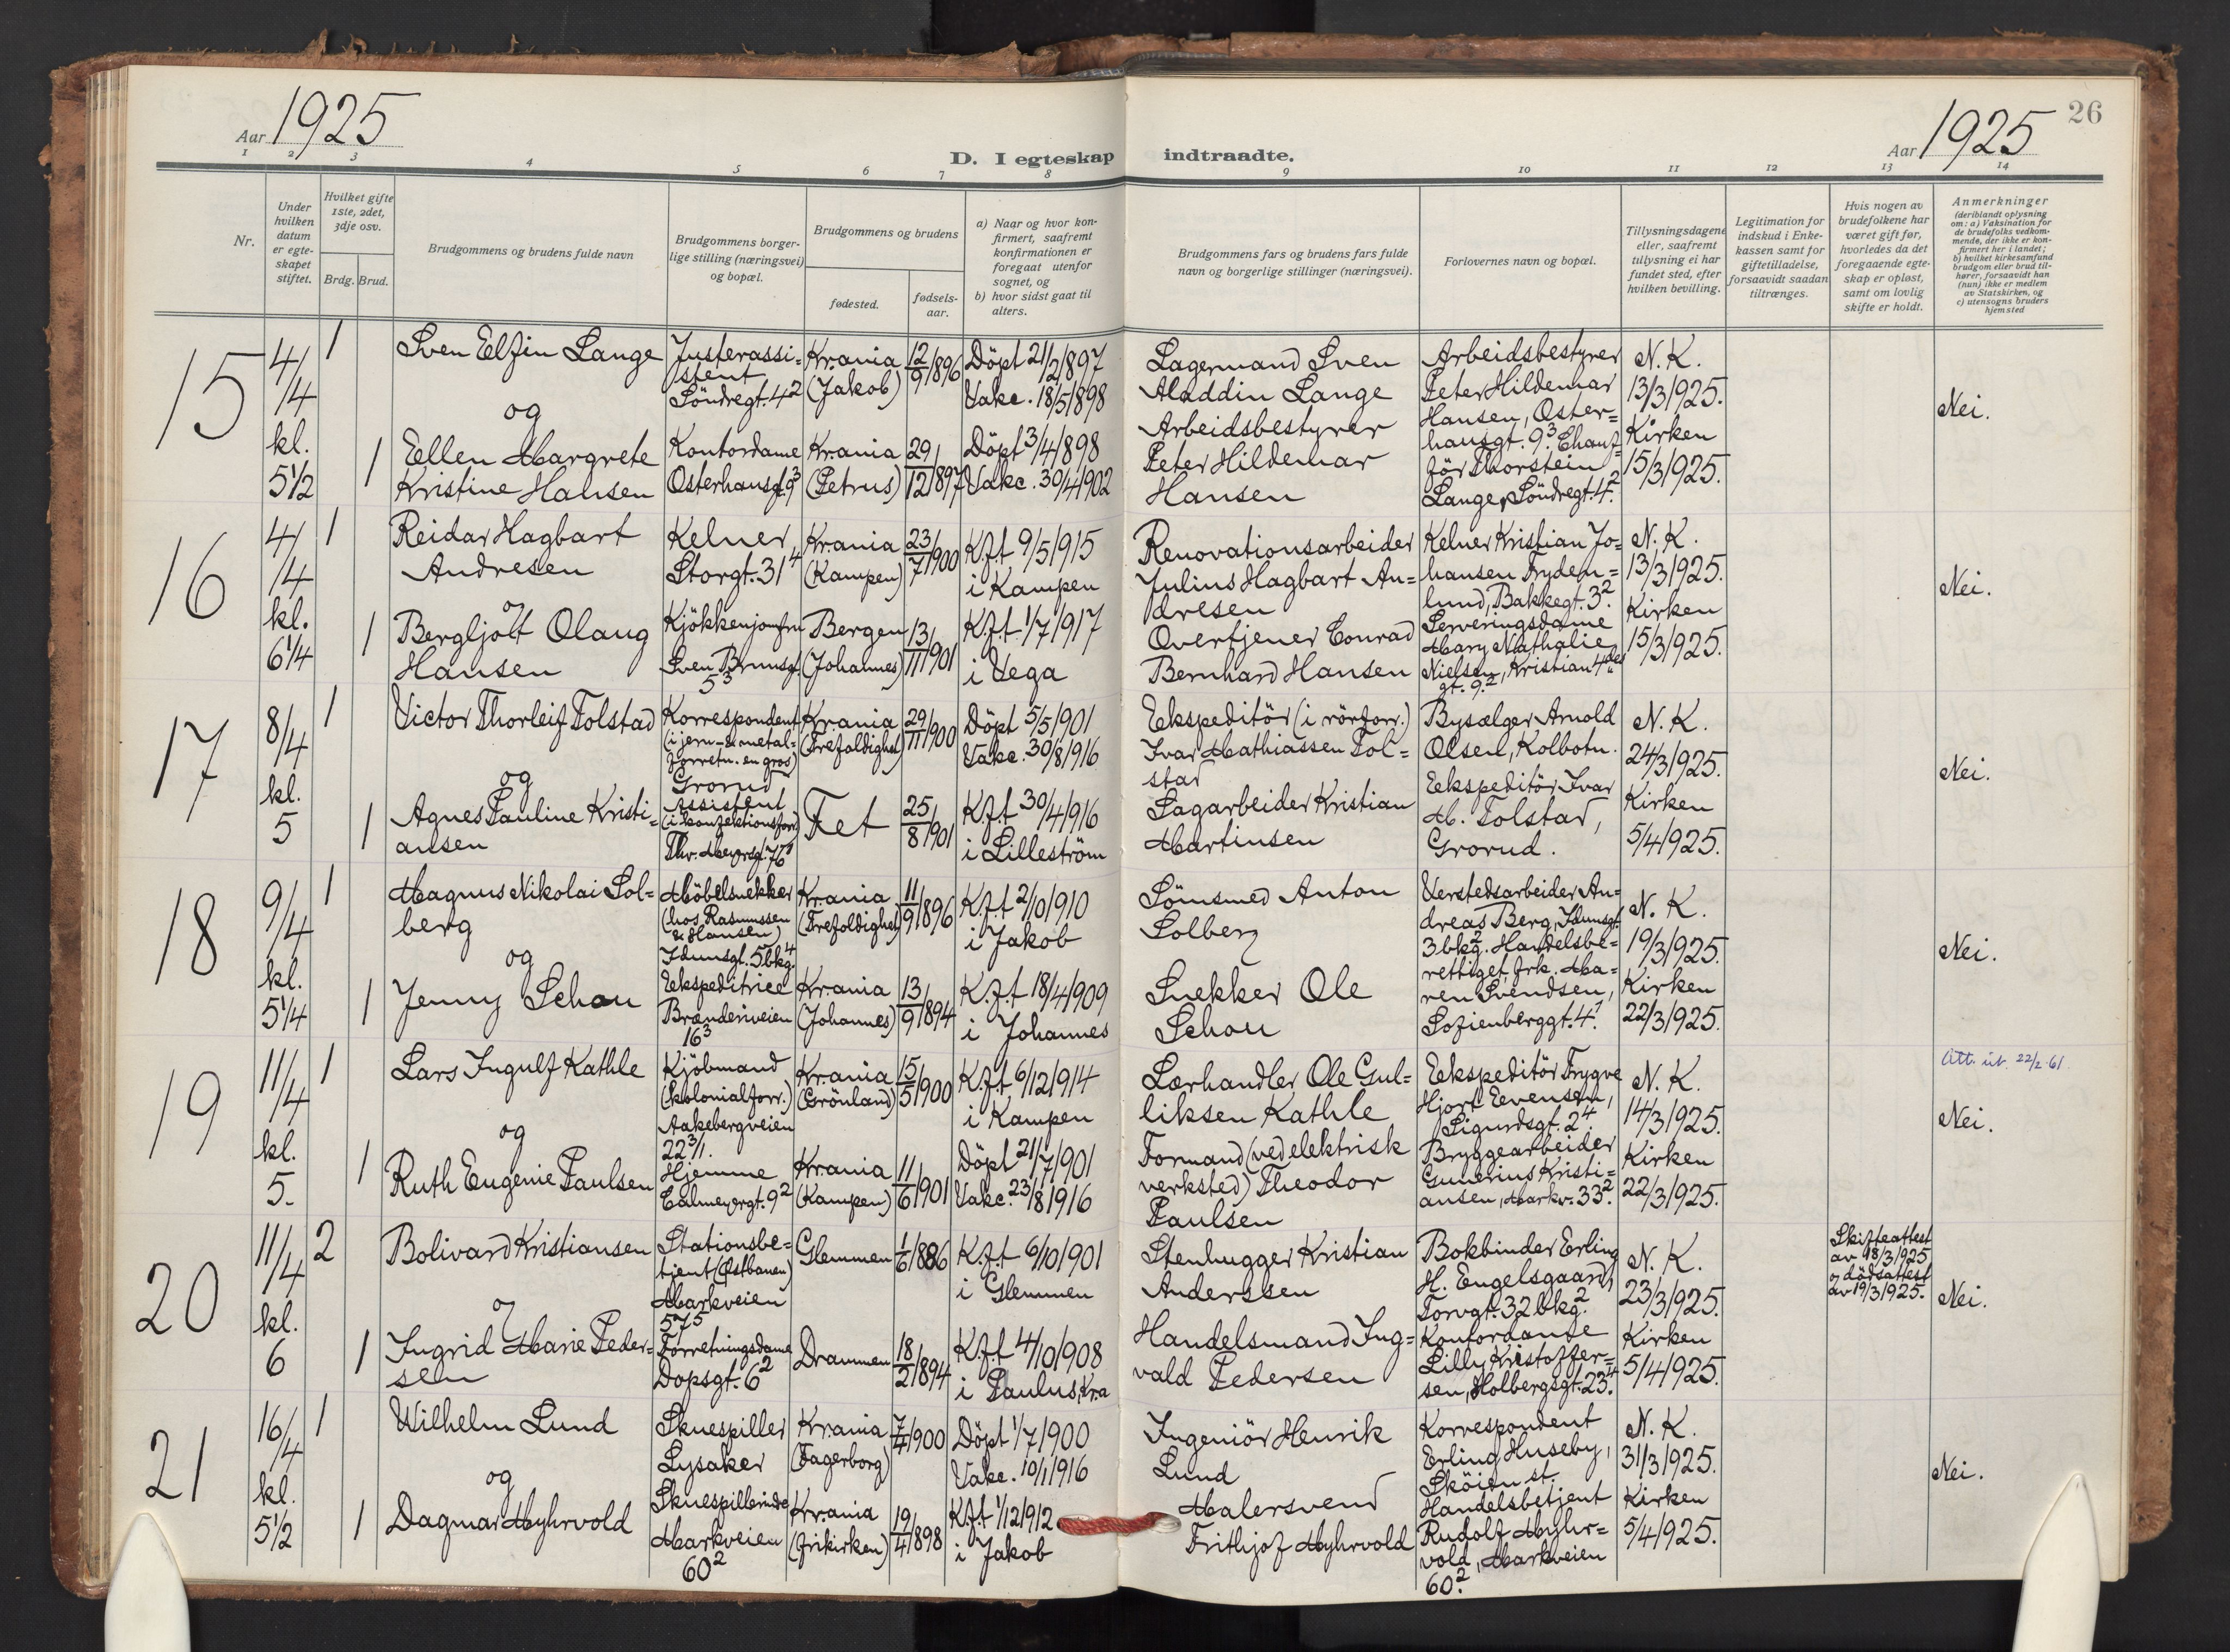 Aar 1925
D. I egteskap indtraadte.
Aar 1925
26
1 2 3 4 5 6 7 8 9 10 11 12 13 14
Nr.
Under hvilken datum er egteskapet stiftet.
Hvilket gifte 1ste, 2det, 3dje osv.
Brdg. Brud.
Brudgommens og brudens fulde navn
Brudgommens borgerlige stilling (næringsvei) og bopæl.
Brudgommens og brudens
fødested.
fødselsaar.
a) Naar og hvor konfirmert, saafremt konfirmationen er foregaat utenfor sognet, og
b) hvor sidst gaat til alters.
Brudgommens fars og brudens fars fulde navn og borgerlige stillinger (næringsvei).
Forlovernes navn og bopæl.
Tillysningsdagene eller, saafremt tillysning ei har fundet sted, efter hvilken bevilling.
Legitimation for indskud i Enkekassen samt for giftetilladelse, forsaavidt saadan tiltrænges.
Hvis nogen av brudefolkene har været gift før, hvorledes da det foregaaende egteskap er opløst, samt om lovlig skifte er holdt.
Anmerkninger (deriblandt oplysning om: a) Vaksination for de brudefolks vedkommende, der ikke er konfirmert her i landet; b) hvilket kirkesamfund brudgom eller brud tilhører, forsaavidt han (hun) ikke er medlem av Statskirken, og c) utensogns bruders hjemsted
15
4/4 kl. 5 1/2
1
Sven Elfin Lange
Justerassistent
Söndregt. 4²
Kr.ania (Jakob)
12/9 1896
Döpt 21/2 1897
Vakc. 18/5 1898
Lagermand Sven
Aladdin Lange
og
1
Ellen Margrete
Kristine Hansen
Kontordame
Osterhausgt. 9³
Kr.ania (Petrus)
29/12 1897
Döpt 3/4 1898
Vakc. 30/4 1902
Arbeidsbestyrer
Peter Hildemar
Hansen
Arbeidsbestyrer
Peter Hildemar
Hansen, Oster=
hausgt. 9³. Chauf=
för Thorstein
Lange, Söndregt. 4².
N. K.
13/3 1925.
Kirken
15/3 1925.
Nei.
16
4/4 kl. 6 1/4
1
Reidar Hagbart
Andresen
Kelner
Storgt. 31⁴
Kr.ania (Kampen)
23/7 1900
K.f.t 9/5 1915
i Kampen
Renovationsarbeider
Julius Hagbart An=
dresen
og
1
Bergljot Olaug
Hansen
Kjökkenjomfru
Sven Brunsgt. 5³
Bergen (Johannes)
13/11 1901
K.f.t 1/7 1917
i Vega
Overtjener Conrad
Bernhard Hansen
Kelner Kristian Jo=
hansen Frydenlund, Bakkegt. 3².
Serveringsdame
Mary Nathalie
Nielsen, Kristian 4des
gt. 9²
N. K.
13/3 1925.
Kirken
15/3 1925.
Nei.
17
8/4 kl. 5
1
Victor Thorleif Tolstad
Korrespondent
(i jern- & metal=
forretn. en gros)
Grorud
Kr.ania (Trefoldighet)
29/11 1900
Döpt 5/5 1901
Vakc. 30/8 1916
Ekspeditör (i rörforr.)
Ivar Mathiassen Tol=
stad
og
1
Agnes Pauline Kristi=
ansen
Assistent
(i konfektionsforr.)
Thv. Meyersgt. 76
Fet
25/8 1901
K.f.t 30/4 1916
i Lilleström
Sagarbeider Kristian
Martinsen
Bysælger Arnold
Olsen, Kolbotn.
Ekspeditör Ivar
M. Tolstad,
Grorud.
N. K.
24/3 1925.
Kirken
5/4 1925.
Nei.
18
9/4 kl. 5 1/4
1
Magnus Nikolai Sol=
berg
Möbelsnekker
(hos Rasmussen
& Hansen)
Idunsgt. 5 bkg.⁴
Kr.ania (Trefoldighet)
11/9 1896
K.f.t 2/10 1910
i Jakob
Sömsmed Anton
Solberg
og
1
Jenny Schou
Ekspeditrice
Brænderiveien
16³
Kr.ania (Johannes)
13/9 1894
K.f.t 18/4 1909
i Johannes
Snekker Ole
Schou
Verstedsarbeider An=
dreas Berg, Idunsgt.
3 bkg.² Handelsbe=
rettiget frk. Ma=
ren Svendsen,
Sofienberggt. 4¹.
N. K.
19/3 1925.
Kirken
22/3 1925.
Nei.
19
11/4 kl. 5.
1
Lars Ingulf Kathle
Kjöbmand
(kolonialforr.)
Aakebergveien
22³/1.
Kr.ania (Grönland)
15/5 1900
K.f.t 6/12 1914
i Kampen
Lærhandler Ole Gul=
liksen Kathle
og
1
Ruth Eugenie Paulsen
Hjemme
Calmeyergt. 9²
Kr.ania (Kampen)
11/6 1901
Döpt 21/7 1901
Vakc. 23/8 1916
Formand (ved elektrisk
verksted) Theodor
Paulsen
Ekspeditör Trygve
Hjort Evensen,
Sigurdsgt. 2⁴.
Bryggearbeider
Gunerius Kristi=
ansen, Markv. 33².
N. K.
14/3 1925.
Kirken
22/3 1925.
Att. ut. 22/2 61.
Nei.
20
11/4 kl. 6
2
Bolivard Kristiansen
Stationsbe=
tjent (Östbanen)
Markveien
57⁵
Glemmen
1/6 1886
K.f.t 6/10 1901
i Glemmen
Stenhugger Kristian
Anderssen
og
1
Ingrid Marie Peder=
sen
Forretningsdame
Dopsgt. 6²
Drammen
18/2 1894
K.f.t 4/10 1908
i Paulus, Kr.a
Handelsmand Ing=
vald Pedersen
Bokbinder Erling
H. Engelsgaard,
Torvgt. 32 bkg.²
Kontordame
Lilly Kristoffer=
sen, Holbergsgt. 23⁴.
N. K.
23/3 1925.
Kirken
5/4 1925.
Skifteattest
av 18/3 1925
og dödsattest
av 19/3 1925.
Nei.
21
16/4 kl. 5 1/2
1
Wilhelm Lund
Skuespiller
Lysaker
Kr.ania (Fagerborg)
7/4 1900
Döpt 1/7 1900
Vakc. 10/1 1916
Ingeniör Henrik
Lund
og
1
Dagmar Myhrvold
Skuespillerinde
Markveien
60²
Kr.ania (frikirken)
19/4 1898
K.f.t 1/12 1912
i Jakob
Malersvend
Frithjof Myhrvold
Korrespondent
Erling Huseby,
Sköien st.
Handelsbetjent
Rudolf Myhr=
vold, Markveien
60².
N. K.
31/3 1925.
Kirken
5/4 1925.
Nei.